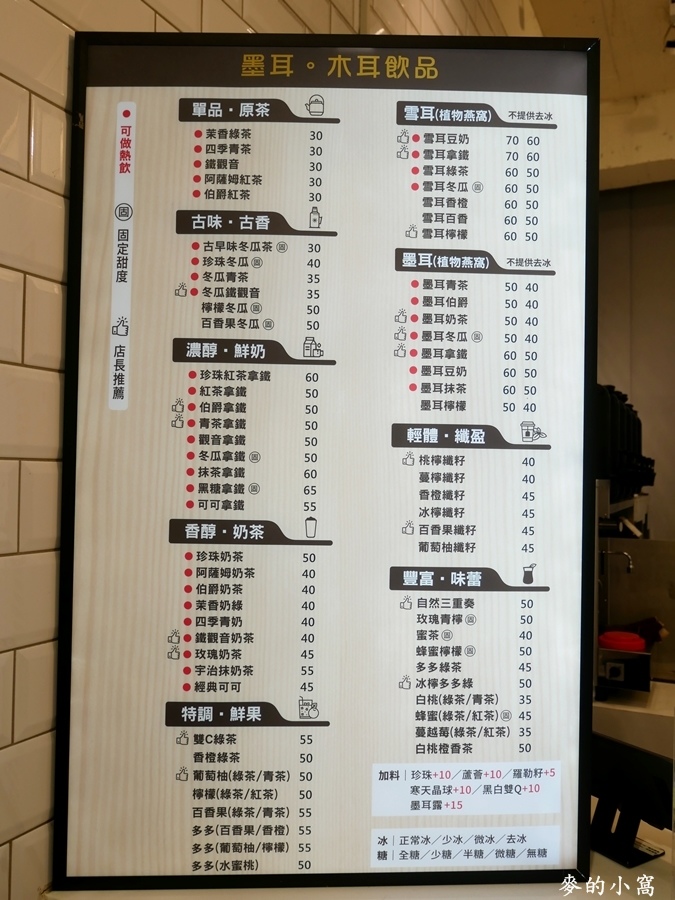 墨耳。木耳飲品
● 可做熱飲
固 固定甜度
店長推薦
單品·原茶
茉香綠茶 30
四季青茶 30
鐵觀音 30
阿薩姆紅茶 30
伯爵紅茶 30
古味·古香
古早味冬瓜茶 固 30
珍珠冬瓜 固 40
冬瓜青茶 35
冬瓜鐵觀音 35
檸檬冬瓜 固 50
百香果冬瓜 固 50
濃醇·鮮奶
珍珠紅茶拿鐵 60
紅茶拿鐵 50
伯爵拿鐵 50
青茶拿鐵 50
觀音拿鐵 50
冬瓜拿鐵 固 50
抹茶拿鐵 60
黑糖拿鐵 固 65
可可拿鐵 55
香醇·奶茶
珍珠奶茶 50
阿薩姆奶茶 40
伯爵奶茶 40
茉香奶綠 40
四季青奶 40
鐵觀音奶茶 40
玫瑰奶茶 45
宇治抹奶茶 55
經典可可 45
特調·鮮果
雙C綠茶 55
香橙綠茶 50
葡萄柚(綠茶/青茶) 50
檸檬(綠茶/紅茶) 50
百香果(綠茶/青茶) 55
多多(百香果/香橙) 55
多多(葡萄柚/檸檬) 55
多多(水蜜桃) 50
雪耳(植物燕窩) 不提供去冰
雪耳豆奶 70 60
雪耳拿鐵 70 60
雪耳綠茶 60 50
雪耳冬瓜 固 60 50
雪耳香橙 60 50
雪耳百香 60 50
雪耳檸檬 60 50
墨耳(植物燕窩) 不提供去冰
墨耳青茶 50 40
墨耳伯爵 50 40
墨耳奶茶 50 40
墨耳冬瓜 固 50 40
墨耳拿鐵 60 50
墨耳豆奶 60 50
墨耳抹茶 60 50
墨耳檸檬 50 40
輕體·纖盈
桃檸纖籽 40
蔓檸纖籽 40
香橙纖籽 45
冰檸纖籽 45
百香果纖籽 45
葡萄柚纖籽 45
豐富·味蕾
自然三重奏 50
玫瑰青檸 固 50
蜜茶 固 40
蜂蜜檸檬 固 50
多多綠茶 45
冰檸多多綠 50
白桃(綠茶/青茶) 35
蜂蜜(綠茶/紅茶) 固 45
蔓越莓(綠茶/紅茶) 35
白桃橙香茶 50
加料|珍珠+10/蘆薈+10/羅勒籽+5
寒天晶球+10/黑白雙Q+10
墨耳露+15
冰|正常冰/少冰/微冰/去冰
糖|全糖/少糖/半糖/微糖/無糖
麥的小窩